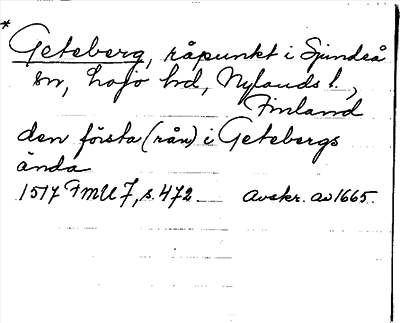 * Geteberg, råpunkt i Sjundeå
sn, Lojo hd, Nylands l.,
Finland
den första (rån) i Getebergs
ända
1517 FMU 7, s. 472 Avskr. av 1665.